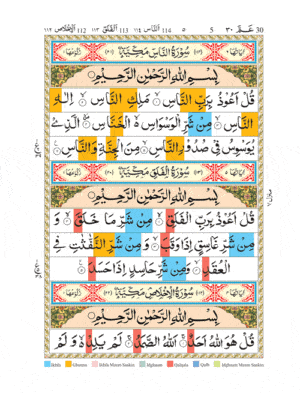 30 عَمَّ ٣٠ 5 ٥ 114 النَّاس ١١٤ 113 الْفَلَق ١١٣ 112 الْإِخْلَاص ١١٢
سُوْرَةُ النَّاسِ مَكِّيَّةٌ
بِسْمِ اللّٰهِ الرَّحْمٰنِ الرَّحِيْمِ
قُلْ اَعُوْذُ بِرَبِّ النَّاسِ مَلِكِ النَّاسِ اِلٰهِ
النَّاسِ مِنْ شَرِّ الْوَسْوَاسِ ەۙ الْخَنَّاسِ الَّذِيْ
يُوَسْوِسُ فِيْ صُدُوْرِ النَّاسِ مِنَ الْجِنَّةِ وَالنَّاسِ
سُوْرَةُ الْفَلَقِ مَكِّيَّةٌ
بِسْمِ اللّٰهِ الرَّحْمٰنِ الرَّحِيْمِ
قُلْ اَعُوْذُ بِرَبِّ الْفَلَقِ مِنْ شَرِّ مَا خَلَقَ وَ
مِنْ شَرِّ غَاسِقٍ اِذَا وَقَبَ وَمِنْ شَرِّ النَّفّٰثٰتِ فِي
الْعُقَدِ وَمِنْ شَرِّ حَاسِدٍ اِذَا حَسَدَ
سُوْرَةُ الْاِخْلَاصِ مَكِّيَّةٌ
بِسْمِ اللّٰهِ الرَّحْمٰنِ الرَّحِيْمِ
قُلْ هُوَ اللّٰهُ اَحَدٌ اَللّٰهُ الصَّمَدُ لَمْ يَلِدْ وَلَمْ
Ikhfa Ghunna Ikhfa Meem Saakin Idghaam Qalqala Qalb Idghaam Meem Saakin